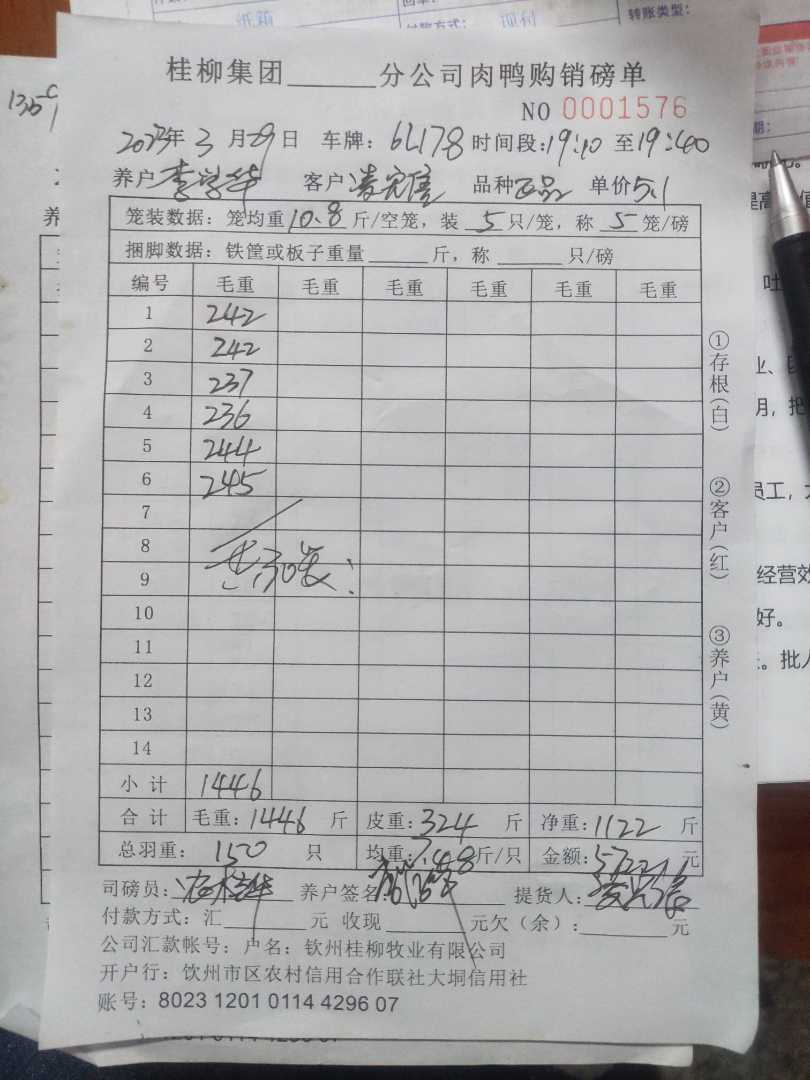 纸箱
付款方式: 现付
转账类型:
桂柳集团______分公司肉鸭购销磅单
NO 0001576
2023年 3 月 29 日 车牌: 6L178 时间段: 19:10 至 19:40
养户 李学华 客户 凌宪信 品种 正品 单价 5.1
笼装数据: 笼均重 10.8 斤/空笼, 装 5 只/笼, 称 5 笼/磅
捆脚数据: 铁筐或板子重量______斤, 称______只/磅
编号 毛重 毛重 毛重 毛重 毛重 毛重
1 242
2 242
3 237
4 236
5 244
6 245
7
8
9
共30笼
10
11
12
13
14
小计 1446
合计 毛重: 1446 斤 皮重: 324 斤 净重: 1122 斤
总羽重: 150 只 均重: 7.48 斤/只 金额: 5722.1 元
司磅员: 养户签名: 提货人:
付款方式: 汇______元 收现______元欠(余):______元
公司汇款帐号: 户名: 钦州桂柳牧业有限公司
开户行: 钦州市区农村信用合作联社大垌信用社
账号: 8023 1201 0114 4296 07
①存根(白)
②客户(红)
③养户(黄)
员工,
经营效
好。
。批人